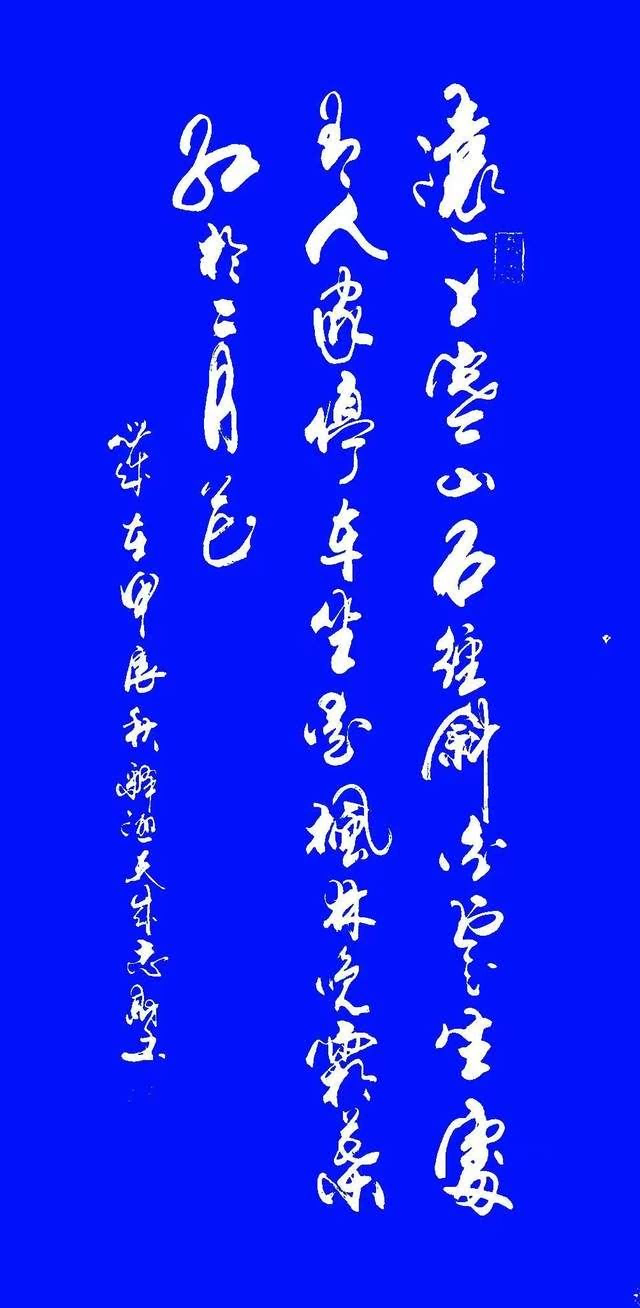 遠上寒山石徑斜白雲生處
有人家停车坐愛楓林晚霜葉
紅於二月花
在甲辰秋